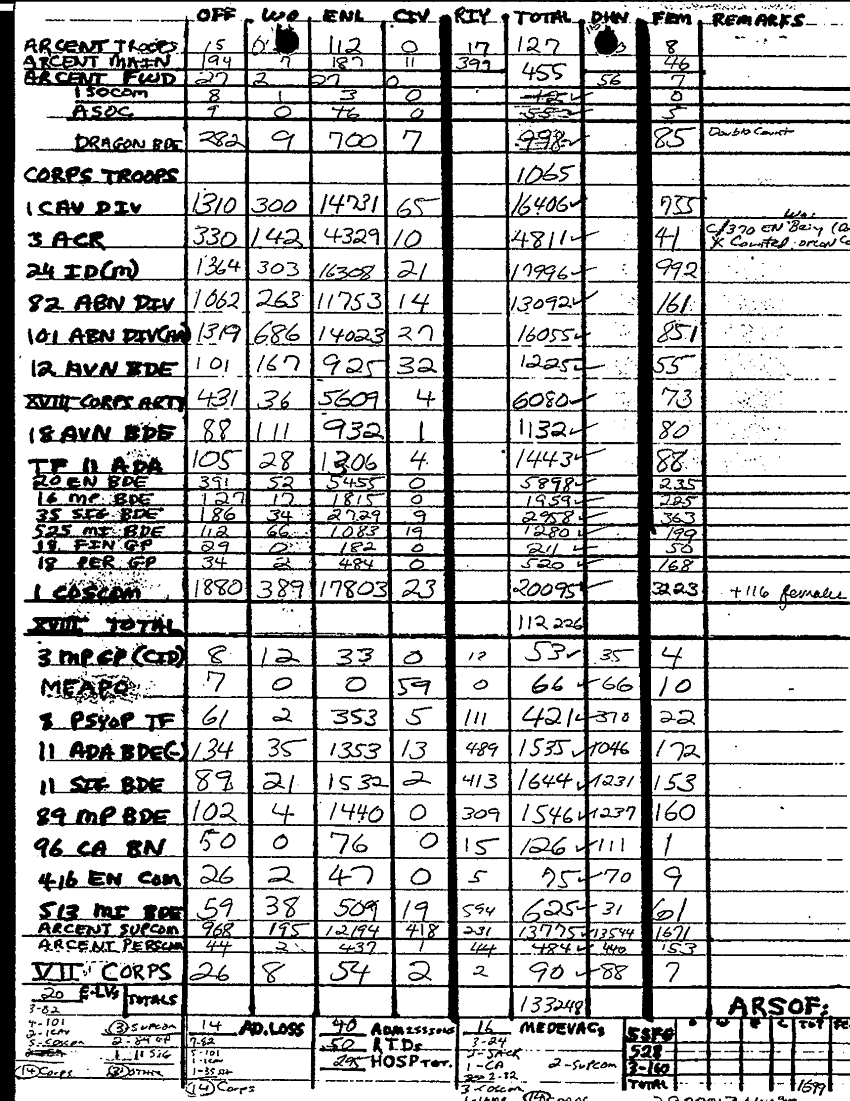 OFF WO ENL CIV RIY TOTAL DHN FEM REMARKS
ARCENT TROOPS 15 112 0 17 127 8
ARCENT MAIN 194 7 187 11 399 46
455
ARCENT FWD 27 2 27 0 56 7
ISOCOM 8 1 3 0 0
ASOC 9 0 46 0 553 5
DRAGON BDE 282 9 700 7 998 85 Double Count
CORPS TROOPS 1065
1 CAV DIV 1310 300 14731 65 16406✓ 735
3 ACR 330 142 4329 10 4811✓ 41 C/370 EN
24 ID(M) 1364 303 16308 21 17996✓ 992
82 ABN DIV 1062 263 11753 14 13092✓ 161
101 ABN DIV(AA) 1319 686 14023 27 16055✓ 851
12 AVN BDE 101 167 925 32 1225✓ 55
XVIII CORPS ARTY 431 36 5609 4 6080✓ 73
18 AVN BDE 88 111 932 1 1132✓ 80
TF 11 ADA 105 28 1306 4 1443✓ 88
20 EN BDE 391 52 5455 0 5898✓ 235
16 MP BDE 127 17 1815 0 1959✓ 225
35 SIG BDE 186 34 2729 9 2958✓ 363
525 MI BDE 112 66 1083 19 1280✓ 199
18 FIN GP 29 0 182 0 211✓ 50
18 PER GP 34 2 484 0 520✓ 168
1 COSCOM 1880 389 17803 23 20095✓ 3223 +116 females
XVIII TOTAL 112 226
3 MP GP (CID) 8 12 33 0 12 53✓ 35 4
MEAPO 7 0 0 59 0 66✓ 66 10
8 PSYOP TF 61 2 353 5 111 421✓ 370 22
11 ADA BDE(-) 134 35 1353 13 489 1535✓ 1046 172
11 SIG BDE 89 21 1532 2 413 1644✓ 1231 153
89 MP BDE 102 4 1440 0 309 1546✓ 1237 160
96 CA BN 50 0 76 0 15 126✓ 111 1
416 EN COM 26 2 47 0 5 75✓ 70 9
513 MI BDE 59 38 509 19 594 625✓ 31 61
ARCENT SUPCOM 968 195 12194 418 231 13775✓ 13544 1671
ARCENT PERSCOM 44 2 437 1 44 484✓ 440 153
VII CORPS 26 8 54 2 2 90✓ 88 7
20 E-LVs TOTALS 133248 ARSOF:
14 AD.LOSS 40 ADMISSIONS 16 MEDEVACs
50 RTDs
295 HOSP TOT.
3-82
4-101 (3) SUPCOM
5-COSCOM 2-89 GP
1 11 SIG
(14) Corps
7-82
5-101
1-1CAV
(14) Corps
3-24
1-CA
2-SUPCOM
3-COSCOM
O W E C TOT FE
5SFG
528
3-160
TOTAL 1699